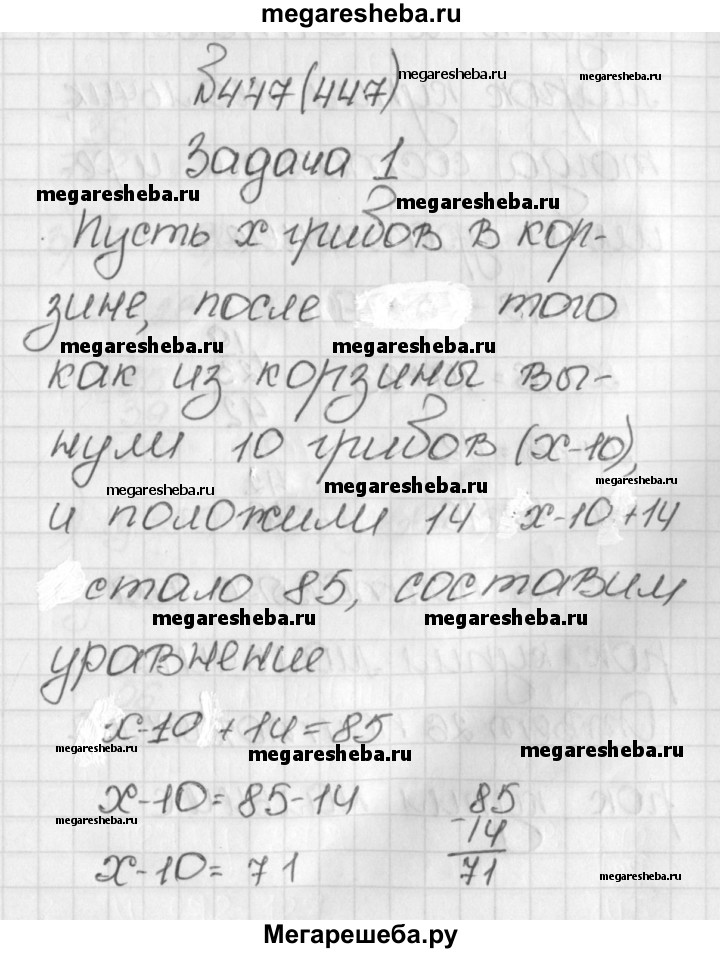 megaresheba.ru
№447(447) megaresheba.ru megaresheba.ru
Задача 1
megaresheba.ru megaresheba.ru
Пусть х грибов в кор-
зине, после того
megaresheba.ru megaresheba.ru
как из корзины вы-
нули 10 грибов (х-10),
megaresheba.ru megaresheba.ru megaresheba.ru
и положили 14 х-10+14
стало 85, составим
megaresheba.ru megaresheba.ru
уравнение
х-10+14=85
megaresheba.ru megaresheba.ru megaresheba.ru
х-10=85-14 85
megaresheba.ru -14
х-10=71 71
megaresheba.ru
Мегарешеба.ру